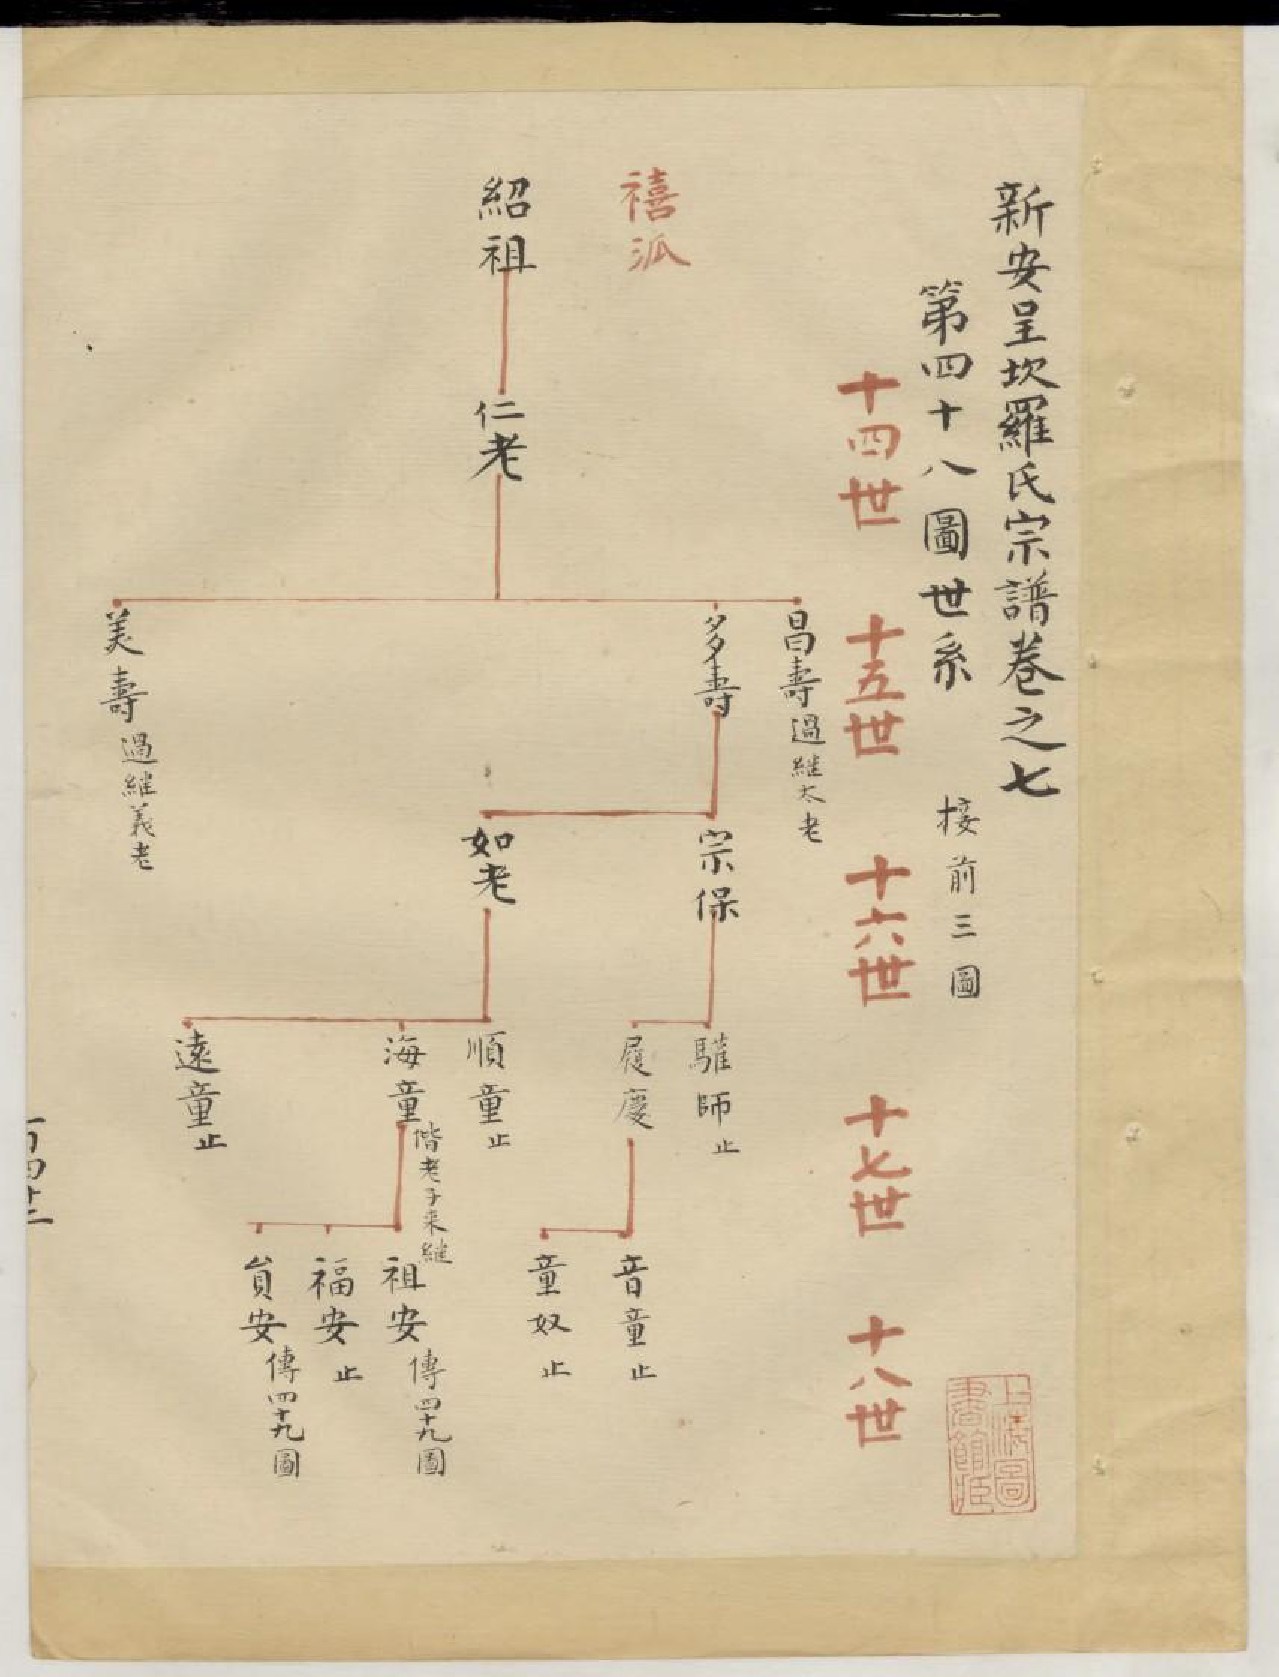 新安呈坎羅氏宗譜卷之七
第四十八圖世系 接前三圖
十四世 十五世 十六世 十七世 十八世
禧派
紹祖
仁老
昌壽 過繼太老
多壽
美壽 過繼義老
宗保
如老
師止
慶
順童止
海童 偕老子來繼
遠童止
音童止
童奴止
祖安 傳四十九圖
福安止
員安 傳四十九圖
上海圖書館藏